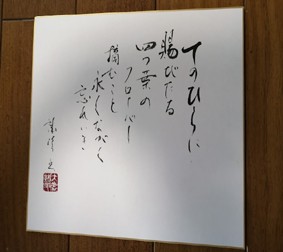 てのひらに
賜びたる
四つ葉の
クローバー
摘むこと
永くながく
忘れいき